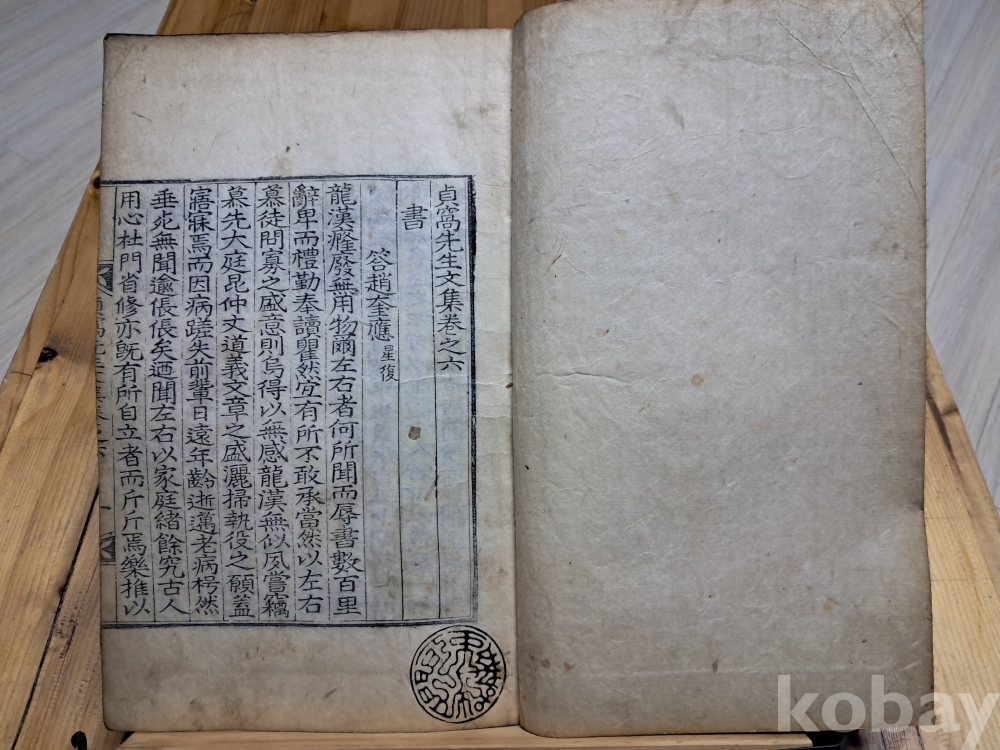 貞窩先生文集卷之六
書
答趙奎應星復
龍漢癃廢無用物爾左右者何所聞而辱書數百里
辭卑而禮勤奉讀瞿然宜有所不敢承當然以左右
慕徒問寡之盛意則烏得以無感龍漢無似夙嘗竊
慕先大庭昆仲丈道義文章之盛灑掃執役之願蓋
寤寐焉而因病蹉失前輩日遠年齡逝邁老病枵然
垂死無聞逾倀倀矣迺聞左右以家庭緖餘究古人
用心杜門省修亦旣有所自立者而斤斤焉樂推以
kobay